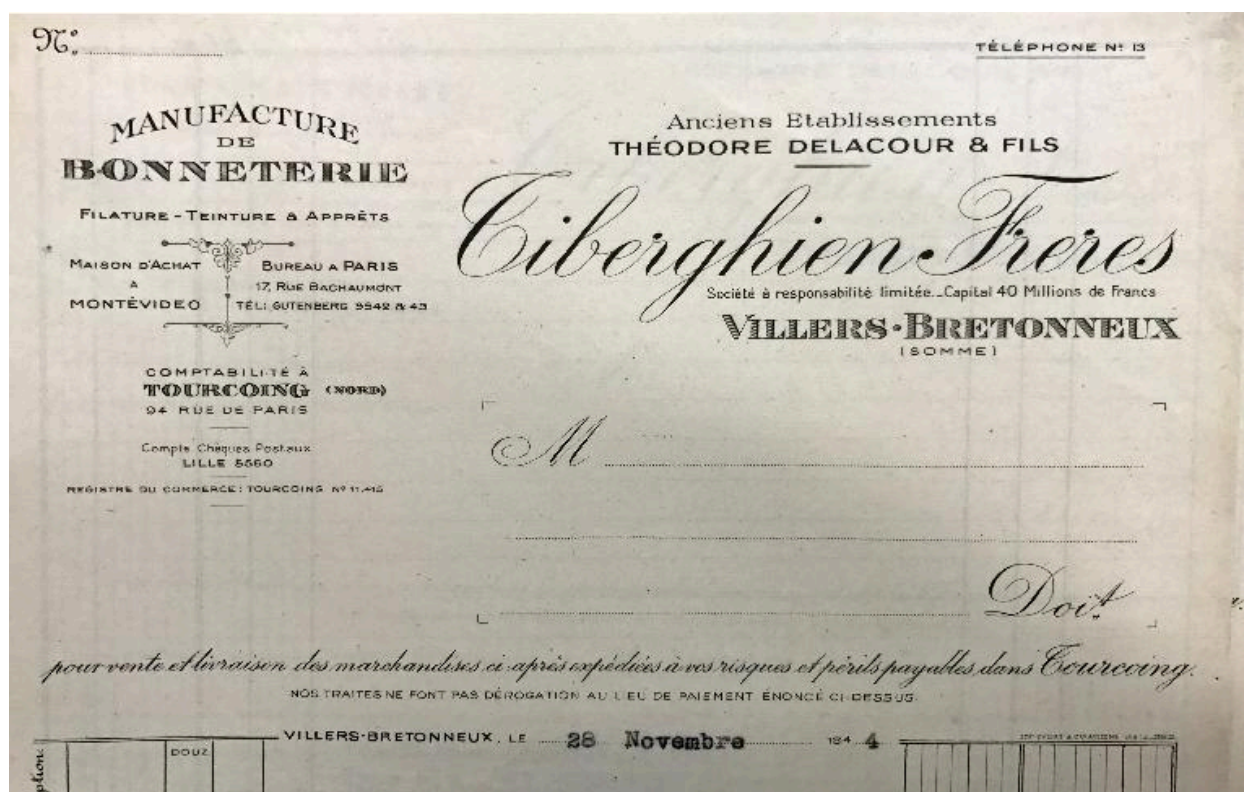 N°.
TÉLÉPHONE N° 13
MANUFACTURE
DE
BONNETERIE
FILATURE - TEINTURE & APPRÊTS
MAISON D'ACHAT
A
MONTÉVIDEO
BUREAU A PARIS
17, RUE BACHAUMONT
TÉL: GUTENBERG 5542 & 43
COMPTABILITÉ À
TOURCOING (NORD)
94 RUE DE PARIS
Compte Chèques Postaux
LILLE 5560
REGISTRE DU COMMERCE: TOURCOING N° 11.415
Anciens Etablissements
THÉODORE DELACOUR & FILS
Tiberghien Frères
Société à responsabilité limitée._Capital 40 Millions de Francs
VILLERS-BRETONNEUX
(SOMME)
M
Doit
pour vente et livraison des marchandises ci-après expédiées à vos risques et périls payables dans Tourcoing.
NOS TRAITES NE FONT PAS DÉROGATION AU LIEU DE PAIEMENT ÉNONCÉ CI-DESSUS.
VILLERS-BRETONNEUX, LE 28 Novembre 194 4
DOUZ